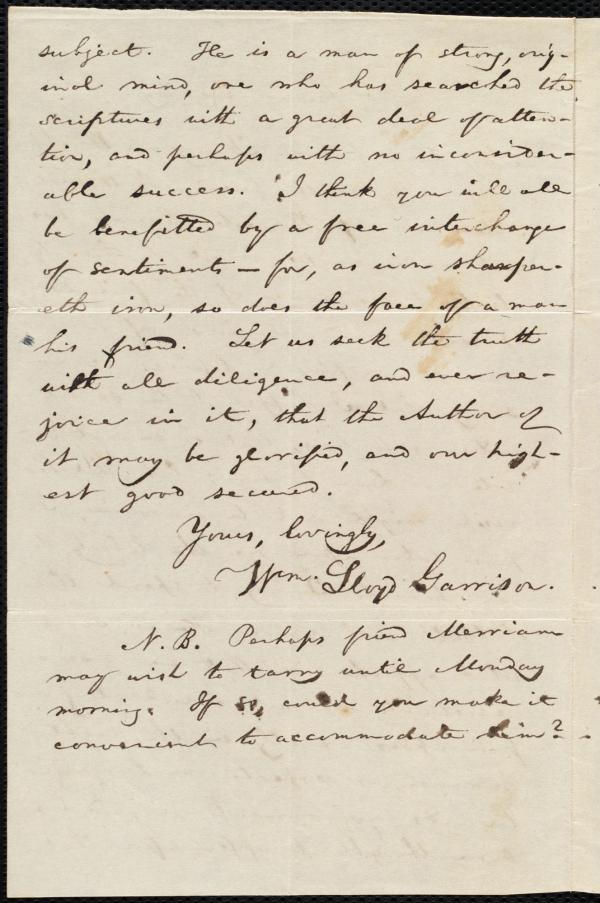 subject. He is a man of strong, orig-
inal mind, one who has searched the
scriptures with a great deal of atten-
tion, and perhaps with no inconsider-
able success. I think you will all
be benefitted by a free interchange
of sentiments — for, as iron sharpen-
eth iron, so does the face of a man
his friend. Let us seek the truth
with all diligence, and ever re-
joice in it, that the Author of
it may be glorified, and our high-
est good secured.
Yours, lovingly,
Wm. Lloyd Garrison.
N. B. Perhaps friend Merriam
may wish to tarry until Monday
morning. If so, could you make it
convenient to accommodate him?